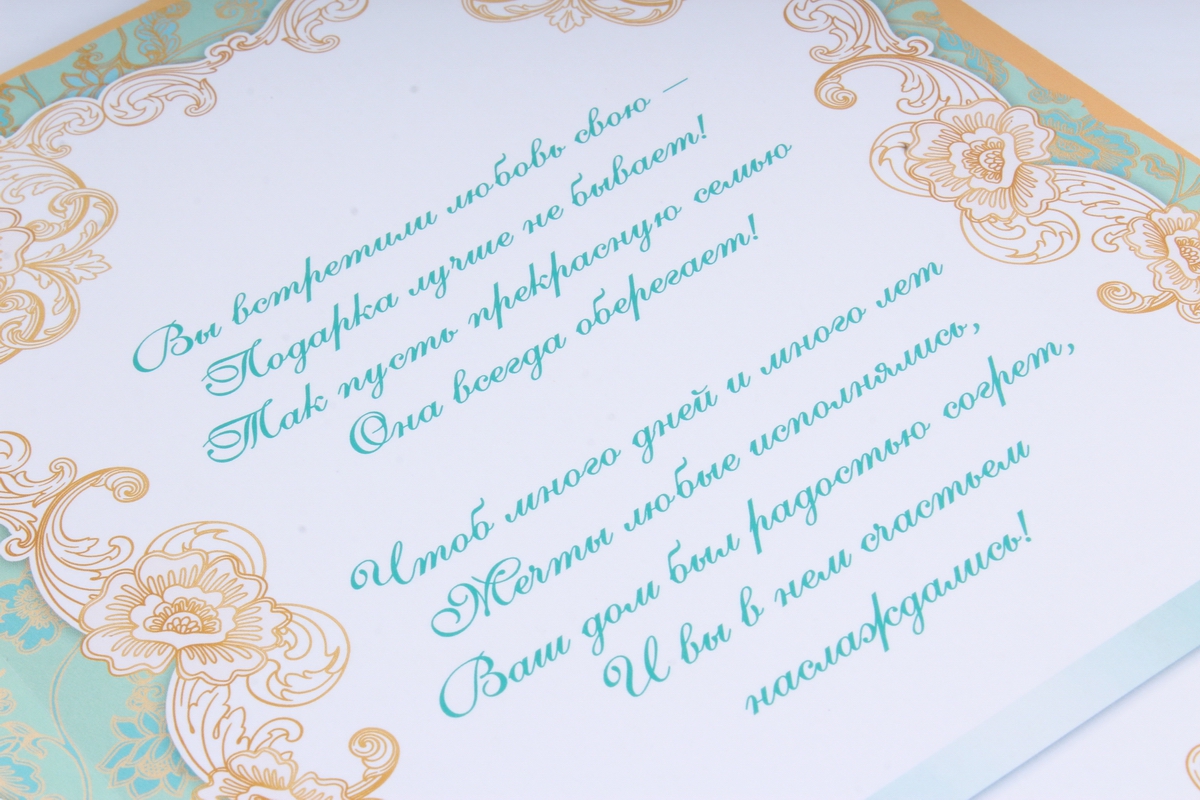 Вы встретили любовь свою –
Подарка лучше не бывает!
Так пусть прекрасную семью
Она всегда оберегает!
Чтоб много дней и много лет
Мечты любые исполнялись,
Ваш дом был радостью согрет,
И вы в нем счастьем
наслаждались!